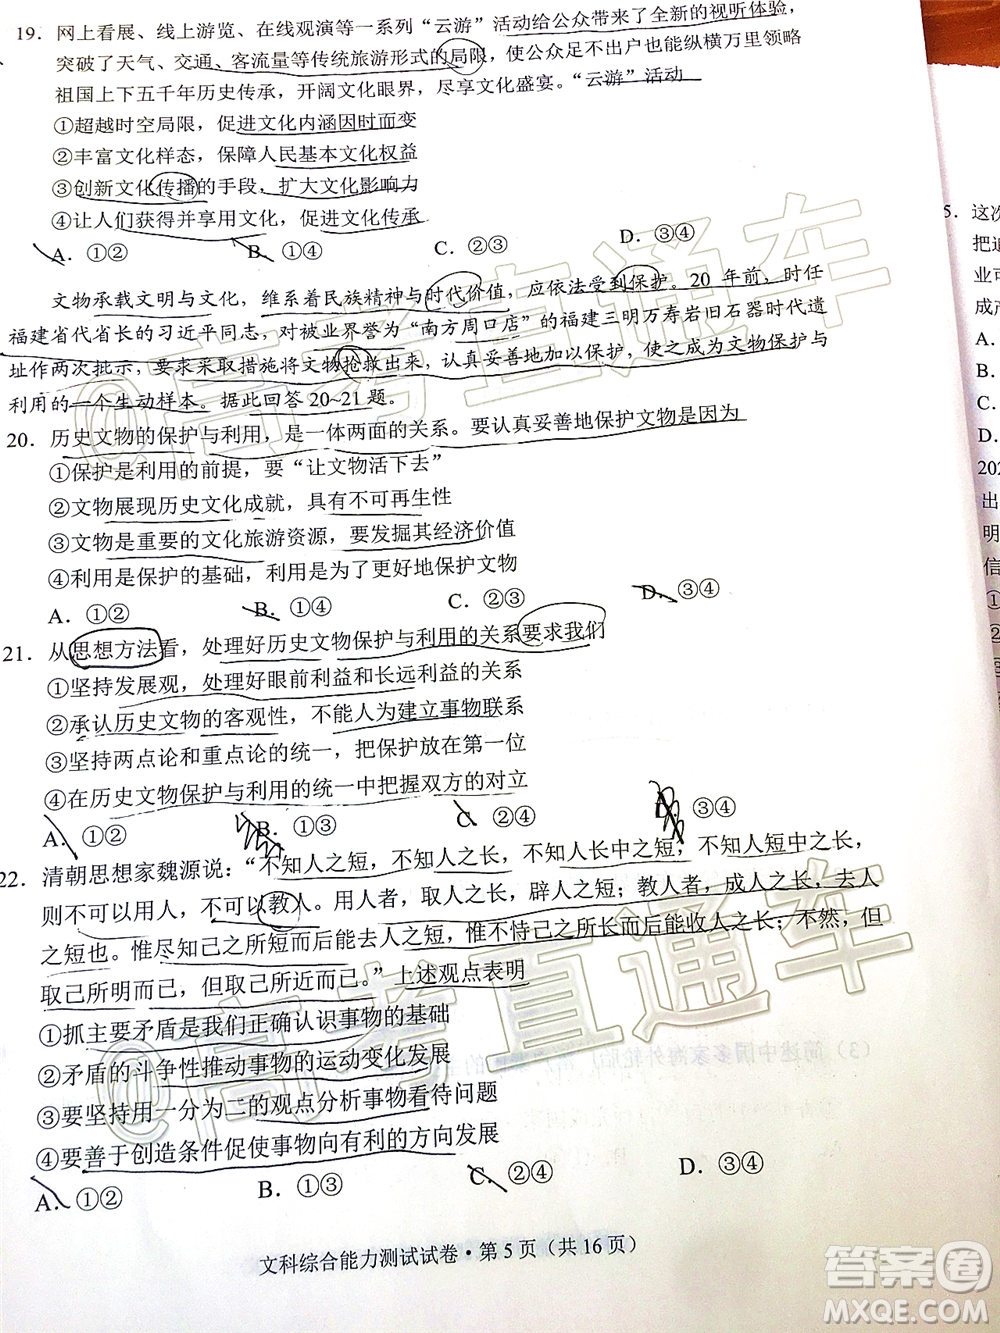 19. 网上看展、线上游览、在线观演等一系列“云游”活动给公众带来了全新的视听体验,
突破了天气、交通、客流量等传统旅游形式的局限，使公众足不出户也能纵横万里领略
祖国上下五千年历史传承，开阔文化眼界，尽享文化盛宴。“云游”活动
①超越时空局限，促进文化内涵因时而变
②丰富文化样态，保障人民基本文化权益
③创新文化传播的手段，扩大文化影响力
④让人们获得并享用文化，促进文化传承
A. ①② B. ①④ C. ②③ D. ③④
文物承载文明与文化，维系着民族精神与时代价值，应依法受到保护。20 年前，时任
福建省代省长的习近平同志，对被业界誉为“南方周口店”的福建三明万寿岩旧石器时代遗
址作两次批示，要求采取措施将文物抢救出来，认真妥善地加以保护，使之成为文物保护与
利用的一个生动样本。据此回答 20~21 题。
20. 历史文物的保护与利用，是一体两面的关系。要认真妥善地保护文物是因为
①保护是利用的前提，要“让文物活下去”
②文物展现历史文化成就，具有不可再生性
③文物是重要的文化旅游资源，要发掘其经济价值
④利用是保护的基础，利用是为了更好地保护文物
A. ①② B. ①④ C. ②③ D. ③④
21. 从思想方法看，处理好历史文物保护与利用的关系要求我们
①坚持发展观，处理好眼前利益和长远利益的关系
②承认历史文物的客观性，不能人为建立事物联系
③坚持两点论和重点论的统一，把保护放在第一位
④在历史文物保护与利用的统一中把握双方的对立
A. ①② B. ①③ C. ②④ D. ③④
22. 清朝思想家魏源说：“不知人之短，不知人之长，不知人长中之短，不知人短中之长，
则不可以用人，不可以教人。用人者，取人之长，辟人之短；教人者，成人之长，去人
之短也。惟尽知己之所短而后能去人之短，惟不恃己之所长而后能收人之长；不然，但
取己所明而已，但取己所近而已。”上述观点表明
①抓主要矛盾是我们正确认识事物的基础
②矛盾的斗争性推动事物的运动变化发展
③要坚持用一分为二的观点分析事物看待问题
④要善于创造条件促使事物向有利的方向发展
A. ①② B. ①③ C. ②④ D. ③④
文科综合能力测试试卷·第 5 页（共 16 页）
5. 这次
把
业可
成产
A.
B.
C.
D.
202
出
明
信
①
②
@高考直通车
@高考直通车
答案圈
MXQE.COM